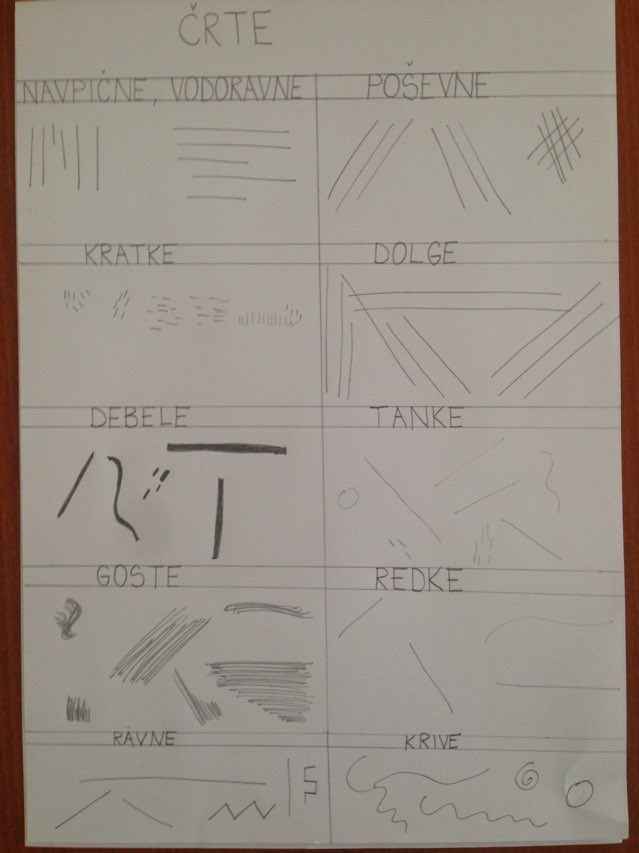 ČRTE
NAVPIČNE, VODORAVNE
POŠEVNE
KRATKE
DOLGE
DEBELE
TANKE
GOSTE
REDKE
RAVNE
KRIVE